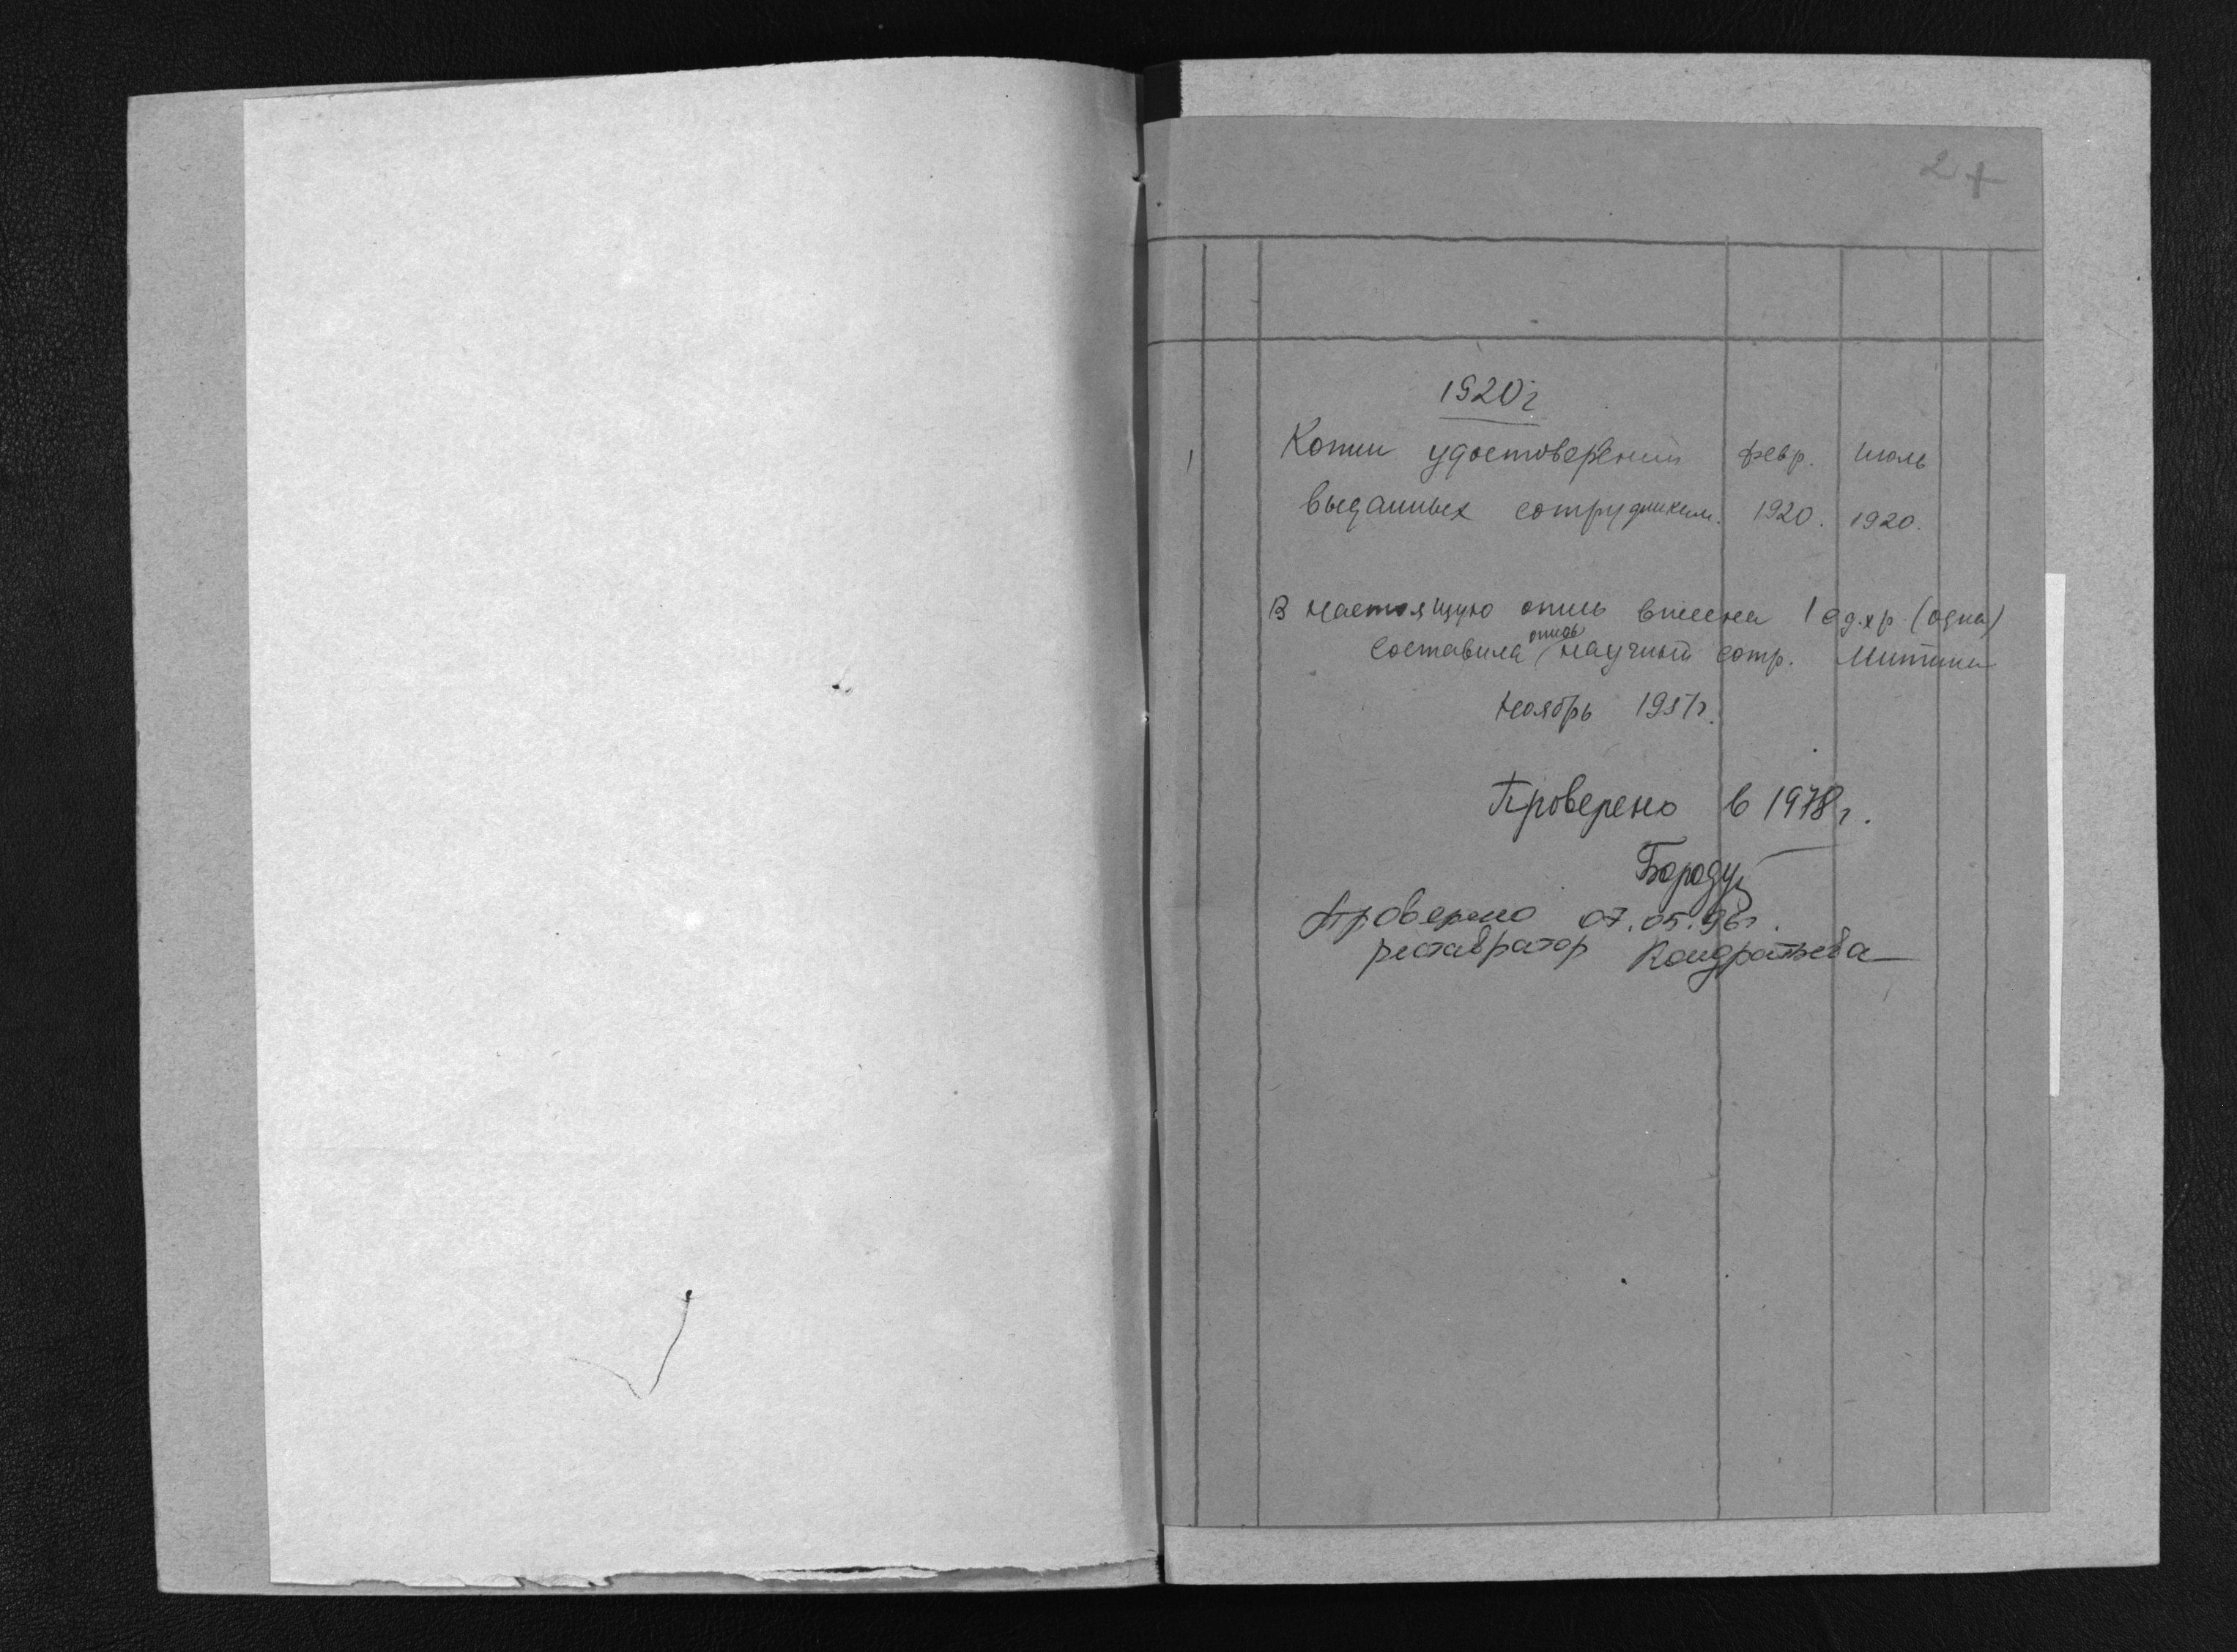 2
1920г
1 Копии удостоверений февр. июль
выданных сотрудникам. 1920. 1920.
В настоящую опись внесена 1 ед.хр. (одна)
Составила опись научный сотр. Митина
Ноябрь 1957г.
Проверено в 1978г.
Проверено 07.05.96г.
реставратор Кондратьева